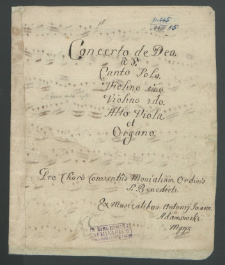 Concerto de Dea
à 5.
Canto Solo
Violino 1mo.
Violino 2do.
Alto Viola
et
Organo.
Pro Choro Conventûs Monialium Ordinis
S. Benedicti
Ex Musicalibus Antonij Joann.
Adamowski